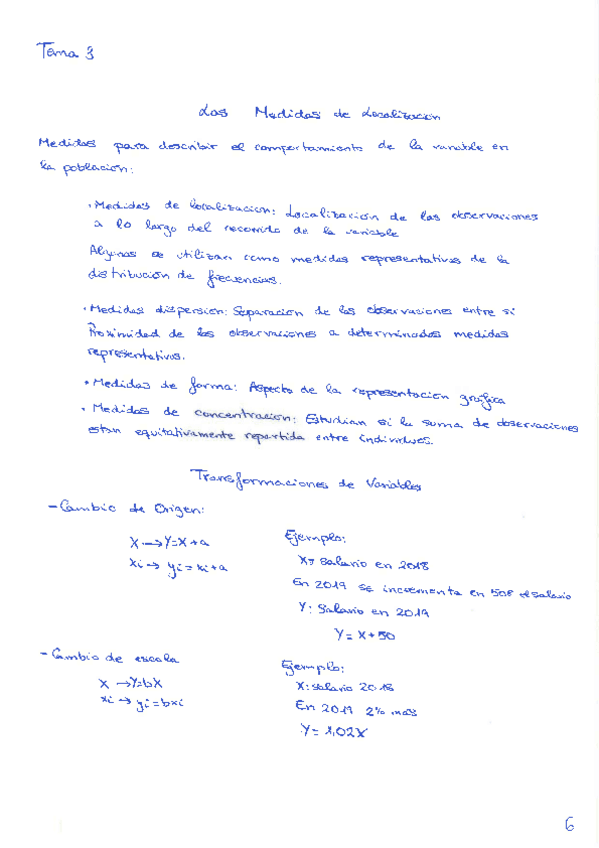 Tema 3
Las Medidas de Localización
Medidas para describir el comportamiento de la variable en
la población:
· Medidas de localización: Localización de las observaciones
a lo largo del recorrido de la variable
Algunas se utilizan como medidas representativas de la
distribución de frecuencias.
· Medidas dispersión: Separación de las observaciones entre si
Proximidad de las observaciones a determinadas medidas
representativas.
· Medidas de forma: Aspecto de la representación gráfica
· Medidas de concentración: Estudian si la suma de observaciones
estan equitativamente repartida entre individuos.
Transformaciones de Variables
- Cambio de Origen:
X → Y=X+a
xi → yi = xi+a
Ejemplo:
X= Salario en 2018
En 2019 se incrementa en 50€ el salario
Y: Salario en 2019
Y= X+50
- Cambio de escala
X → Y=bX
xi → yi=bxi
Ejemplo:
X: salario 2018
En 2019 2% más
Y= 1,02X
6